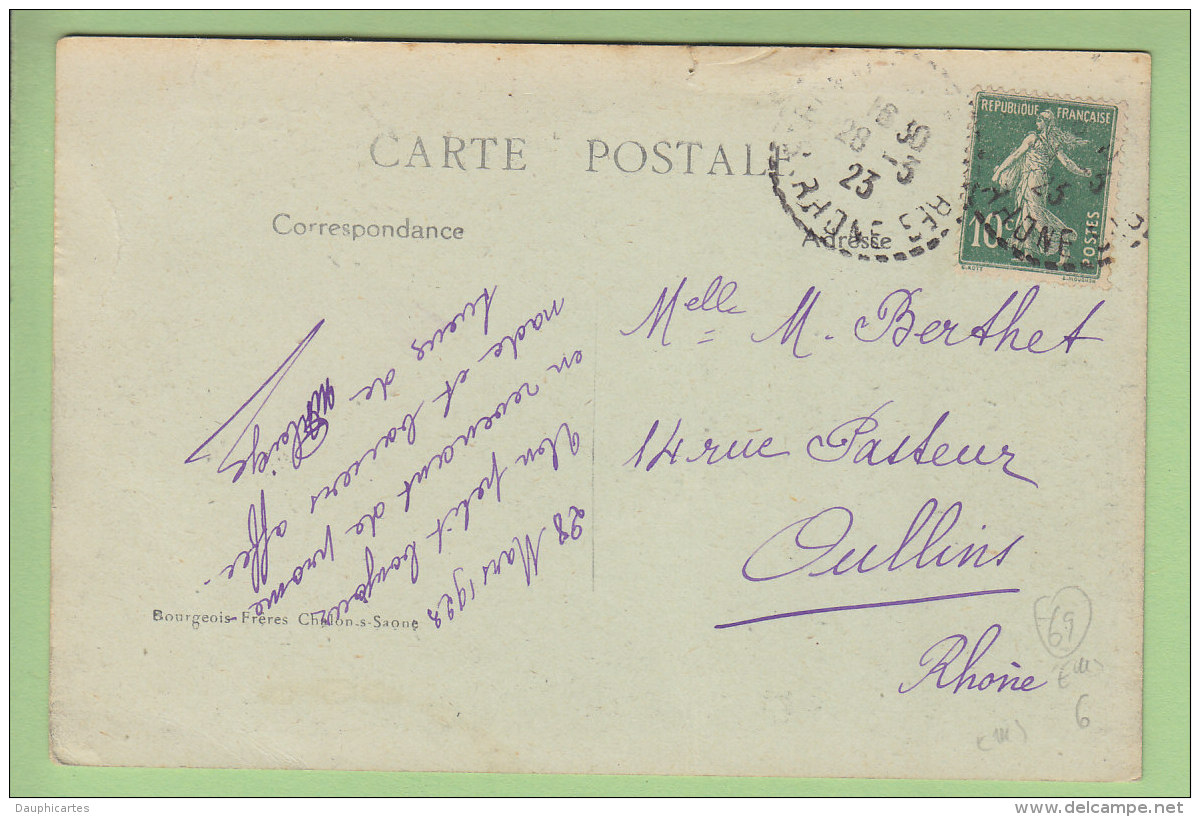 CARTE POSTALE
Correspondance
Adresse
16 30
28 -3
23
RHONE
REPUBLIQUE FRANÇAISE
10c
POSTES
28 Mars 1923
Mon petit bonjour
en revenant de prome
nade et baisers affec
tueux de
Melle M. Berthet
14 rue Pasteur
Oullins
Rhône
Bourgeois Frères Chalon-s-Saone
69
6
Dauphicartes
delcampe.net